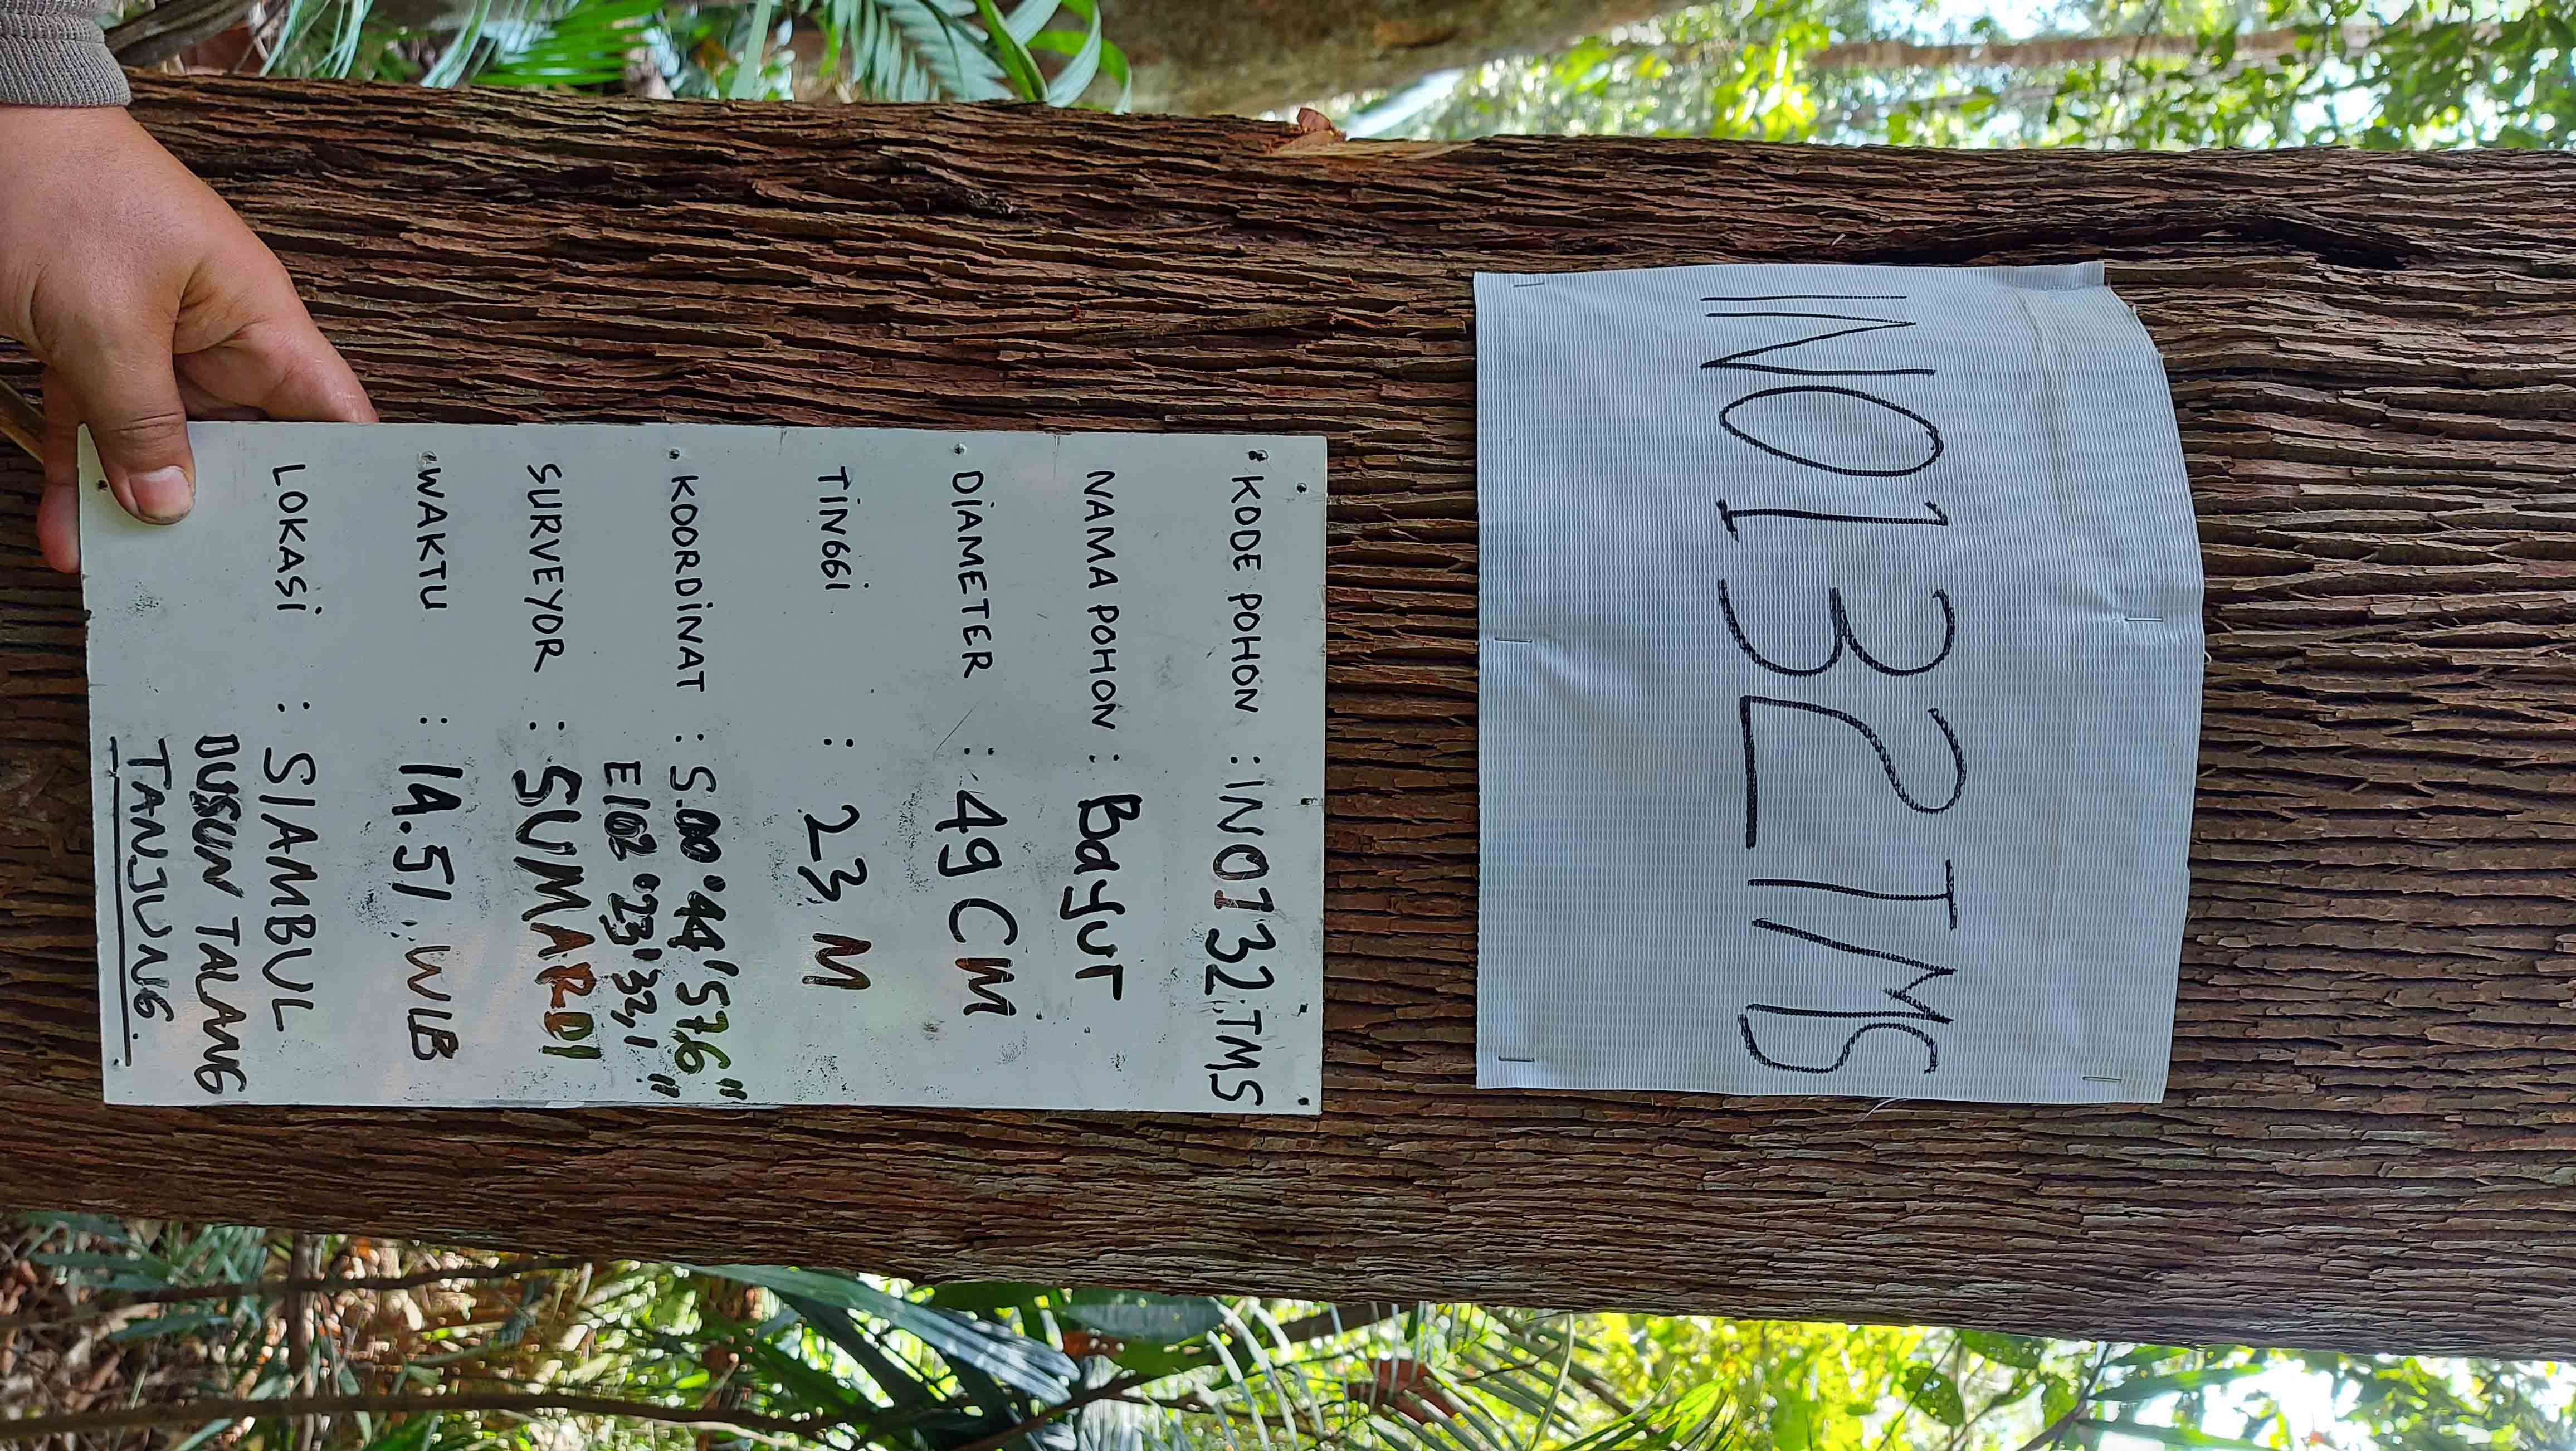 IN0132TMS
KODE POHON : IN0132.TMS
NAMA POHON : Bayur
DIAMETER : 49 CM
TINGGI : 23 M
KOORDINAT : S.00°44'57.6"
E102°23'32,1"
SURVEYOR : SUMARDI
WAKTU : 14.51.WIB
LOKASI : SIAMBUL
DUSUN TALANG
TANJUNG.